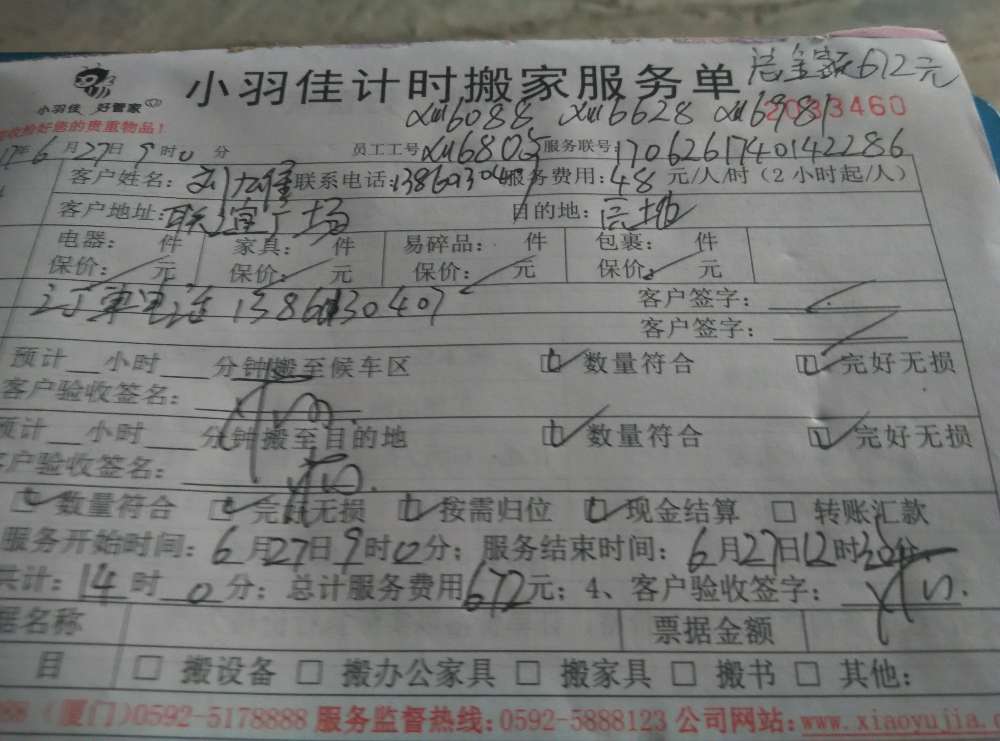 小羽佳计时搬家服务单 总金额672元
小羽佳 好管家
xm6088 xm6628 xm6981 2033460
收检好您的贵重物品!
17年6月27日9时0分 员工工号xm6805 服务联号:170626174014 2286
客户姓名: 联系电话:1386013040 服务费用:48元/人/时(2小时起/人)
客户地址:联谊广场 目的地:高地
电器: 件 家具: 件 易碎品: 件 包裹: 件
保价: 元 保价: 元 保价: 元 保价: 元
订单电话 客户签字:
客户签字:
预计__小时___分钟搬至候车区 数量符合 完好无损
客户验收签名:
预计__小时___分钟搬至目的地 数量符合 完好无损
客户验收签名:
数量符合 完好无损 按需归位 现金结算 □ 转账汇款
服务开始时间:6月27日9时0分;服务结束时间:6月27日12时30分
共计:14时0分;总计服务费用672元;4、客户验收签字:
据名称 票据金额
目 □ 搬设备 □ 搬办公家具 □ 搬家具 □ 搬书 □ 其他:
088(厦门)0592-5178888 服务监督热线:0592-5888123 公司网站:www.xiaoyujia.